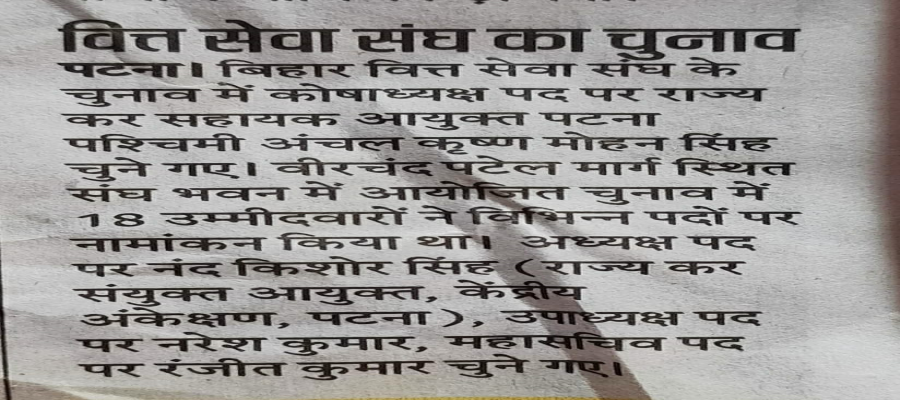 वित्त सेवा संघ का चुनाव
पटना। बिहार वित्त सेवा संघ के
चुनाव में कोषाध्यक्ष पद पर राज्य
कर सहायक आयुक्त पटना
पश्चिमी अंचल कृष्ण मोहन सिंह
चुने गए। वीरचंद पटेल मार्ग स्थित
संघ भवन में आयोजित चुनाव में
18 उम्मीदवारों ने विभिन्न पदों पर
नामांकन किया था। अध्यक्ष पद
पर नंद किशोर सिंह (राज्य कर
संयुक्त आयुक्त, केंद्रीय
अंकेक्षण, पटना), उपाध्यक्ष पद
पर नरेश कुमार, महासचिव पद
पर रंजीत कुमार चुने गए।